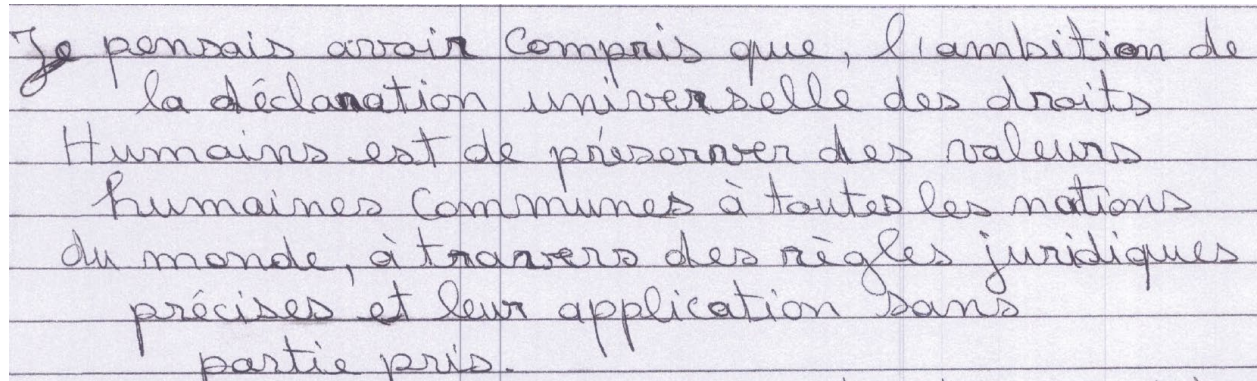 Je pensais avoir compris que, l'ambition de
la déclaration universelle des droits
Humains est de préserver des valeurs
humaines communes à toutes les nations
du monde, à travers des règles juridiques
précises et leur application sans
partie pris.